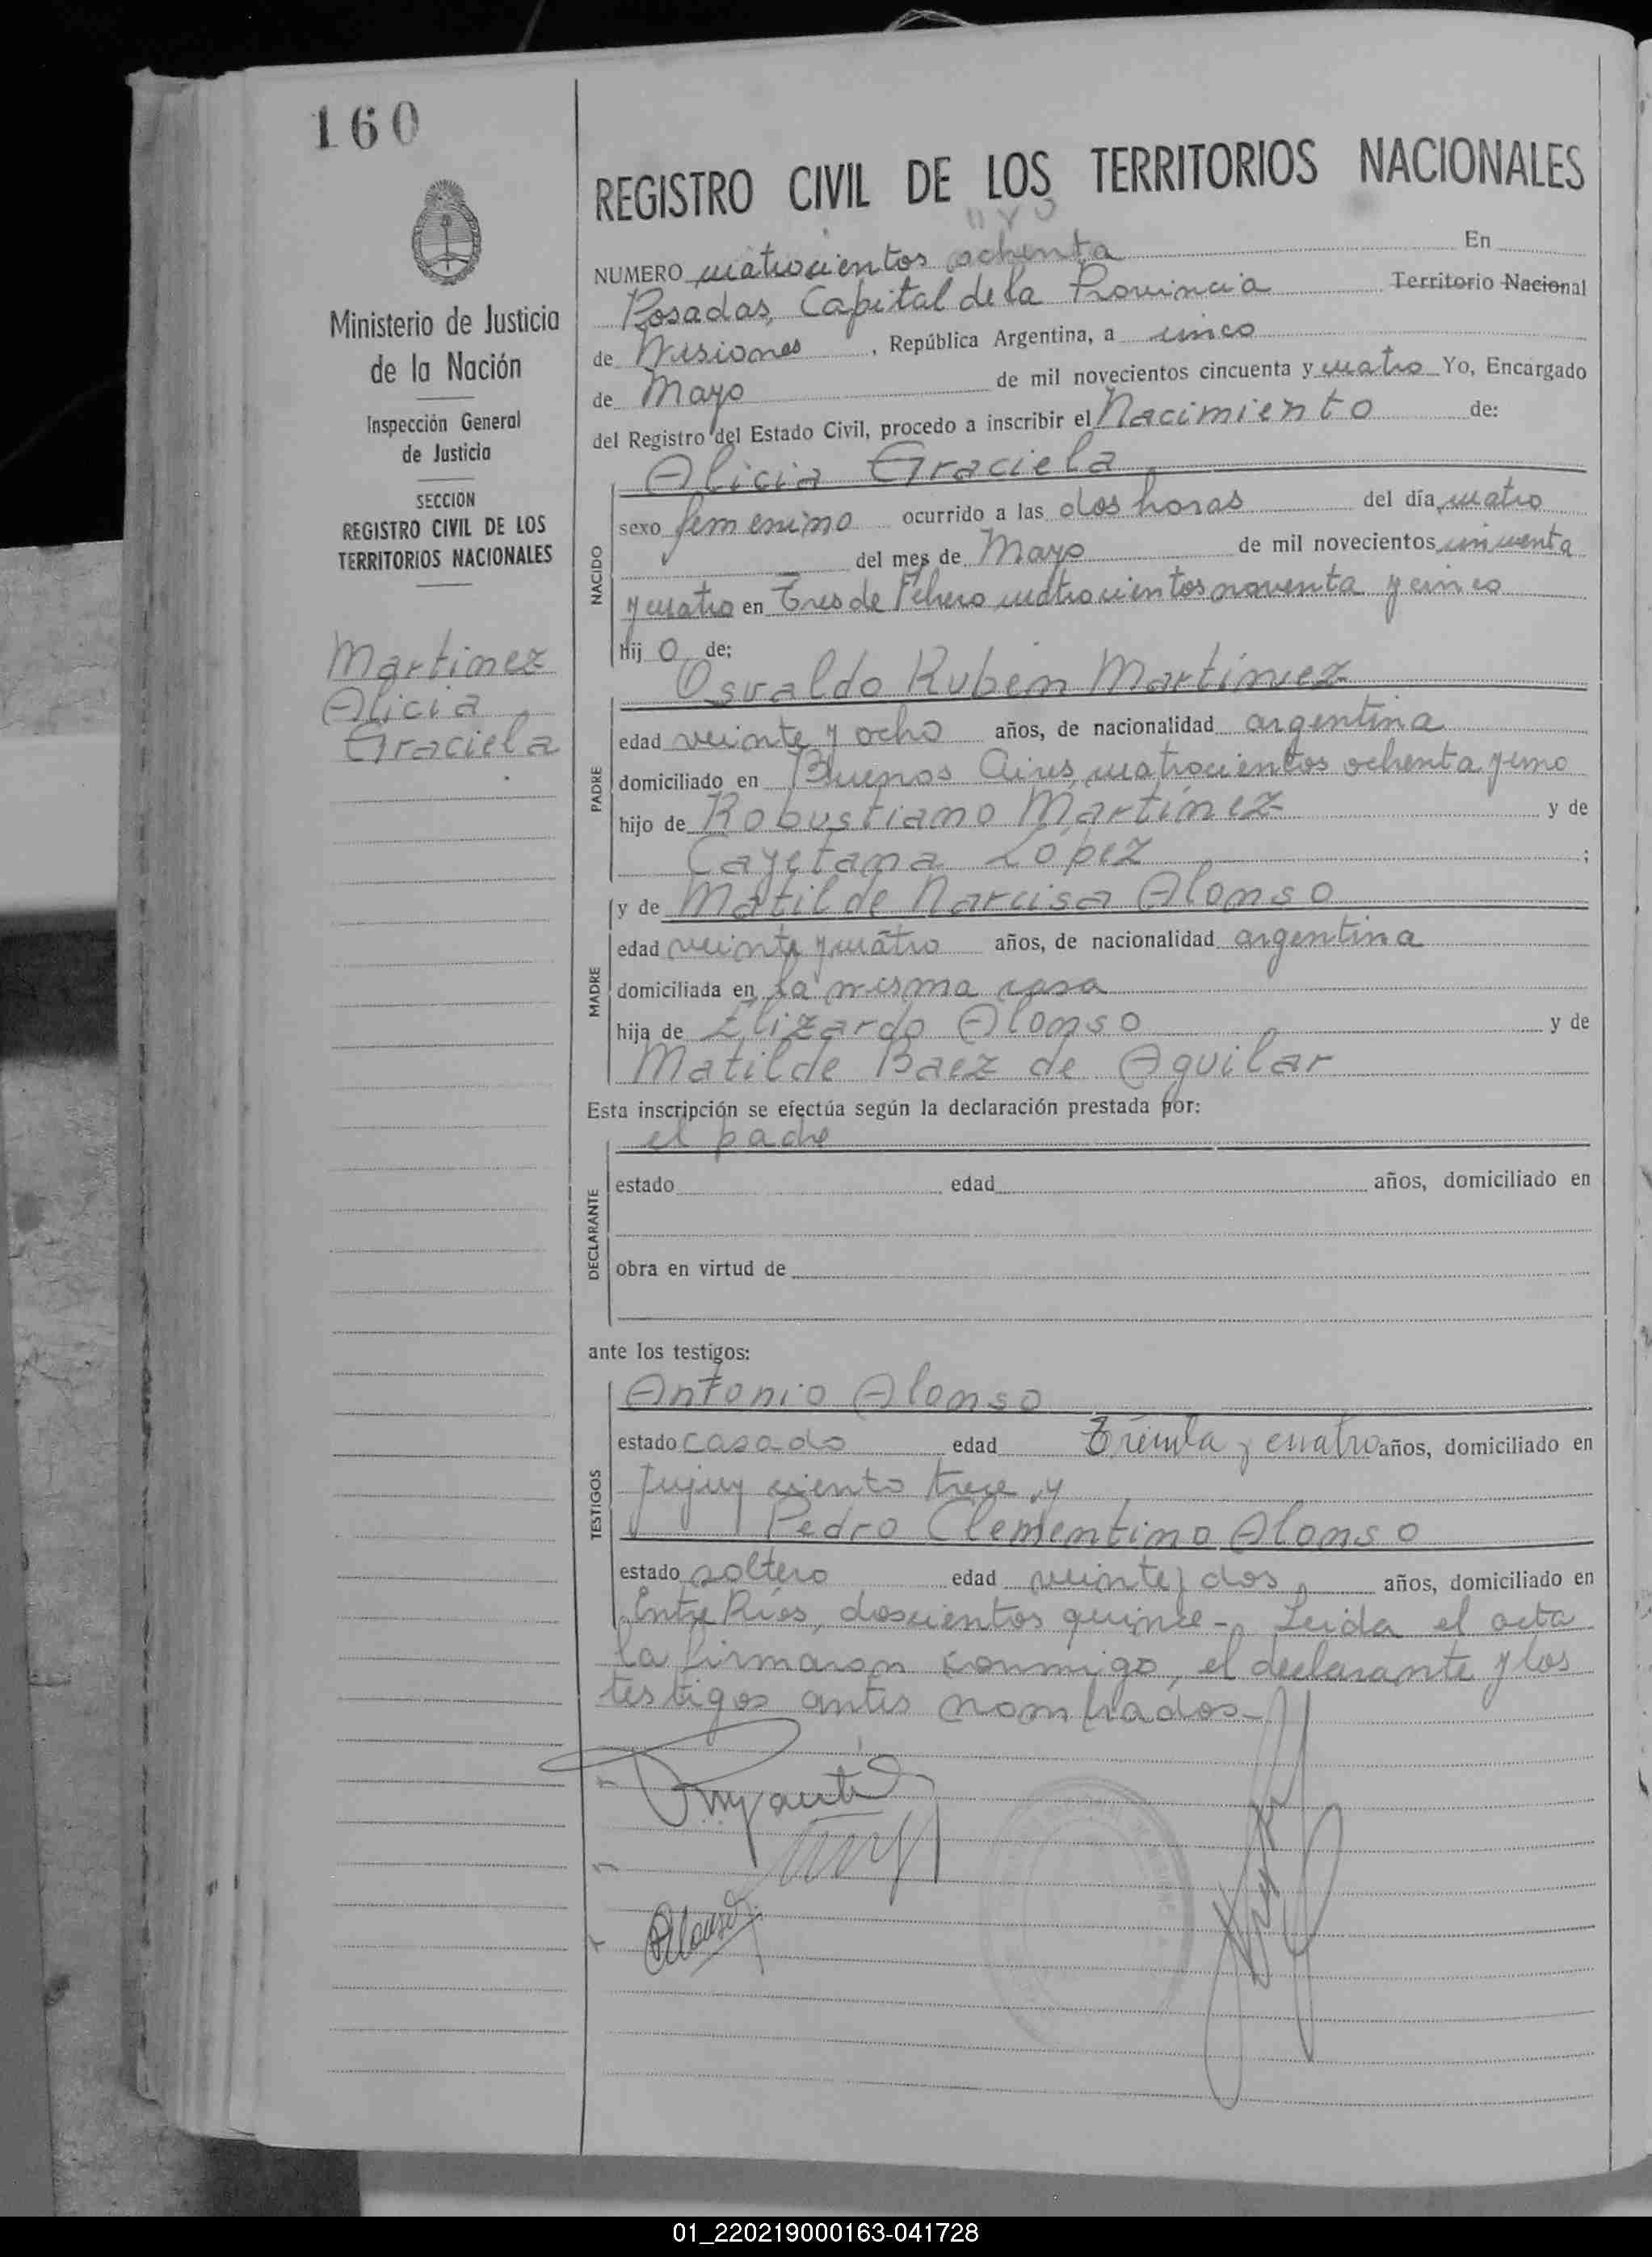 160
REGISTRO CIVIL DE LOS TERRITORIOS NACIONALES
NUMERO cuatrocientos ochenta En
Posadas, Capital de la Provincia Territorio Nacional
de Misiones, República Argentina, a cinco
de Mayo de mil novecientos cincuenta y cuatro Yo, Encargado
del Registro del Estado Civil, procedo a inscribir el Nacimiento de:
Ministerio de Justicia
de la Nación
Inspección General
de Justicia
SECCIÓN
REGISTRO CIVIL DE LOS
TERRITORIOS NACIONALES
Martinez
Alicia
Graciela
Alicia Graciela
NACIDO
sexo femenino ocurrido a las dos horas del día cuatro
del mes de Mayo de mil novecientos cincuenta
y cuatro en Tres de Febrero cuatrocientos noventa y cinco
Hij o de:
Osvaldo Ruben Martínez
PADRE
edad veinte y ocho años, de nacionalidad argentina
domiciliado en Buenos Aires, cuatrocientos ochenta y uno
hijo de Robustiano Martínez y de
Cayetana López ;
y de Matilde Narcisa Alonso
MADRE
edad veinte y cuatro años, de nacionalidad argentina
domiciliada en la misma casa
hija de Elizardo Alonso y de
Matilde Baez de Aguilar
Esta inscripción se efectúa según la declaración prestada por:
el padre
DECLARANTE
estado edad años, domiciliado en
obra en virtud de
ante los testigos:
Antonio Alonso
TESTIGOS
estado casado edad Treinta y cuatro años, domiciliado en
Jujuy ciento trece, y
Pedro Clementino Alonso
estado soltero edad veinte y dos, años, domiciliado en
Entre Ríos, doscientos quince - Leida el acta
la firmaron conmigo, el declarante y los
testigos antes nombrados -
PAlonso
01_220219000163-041728